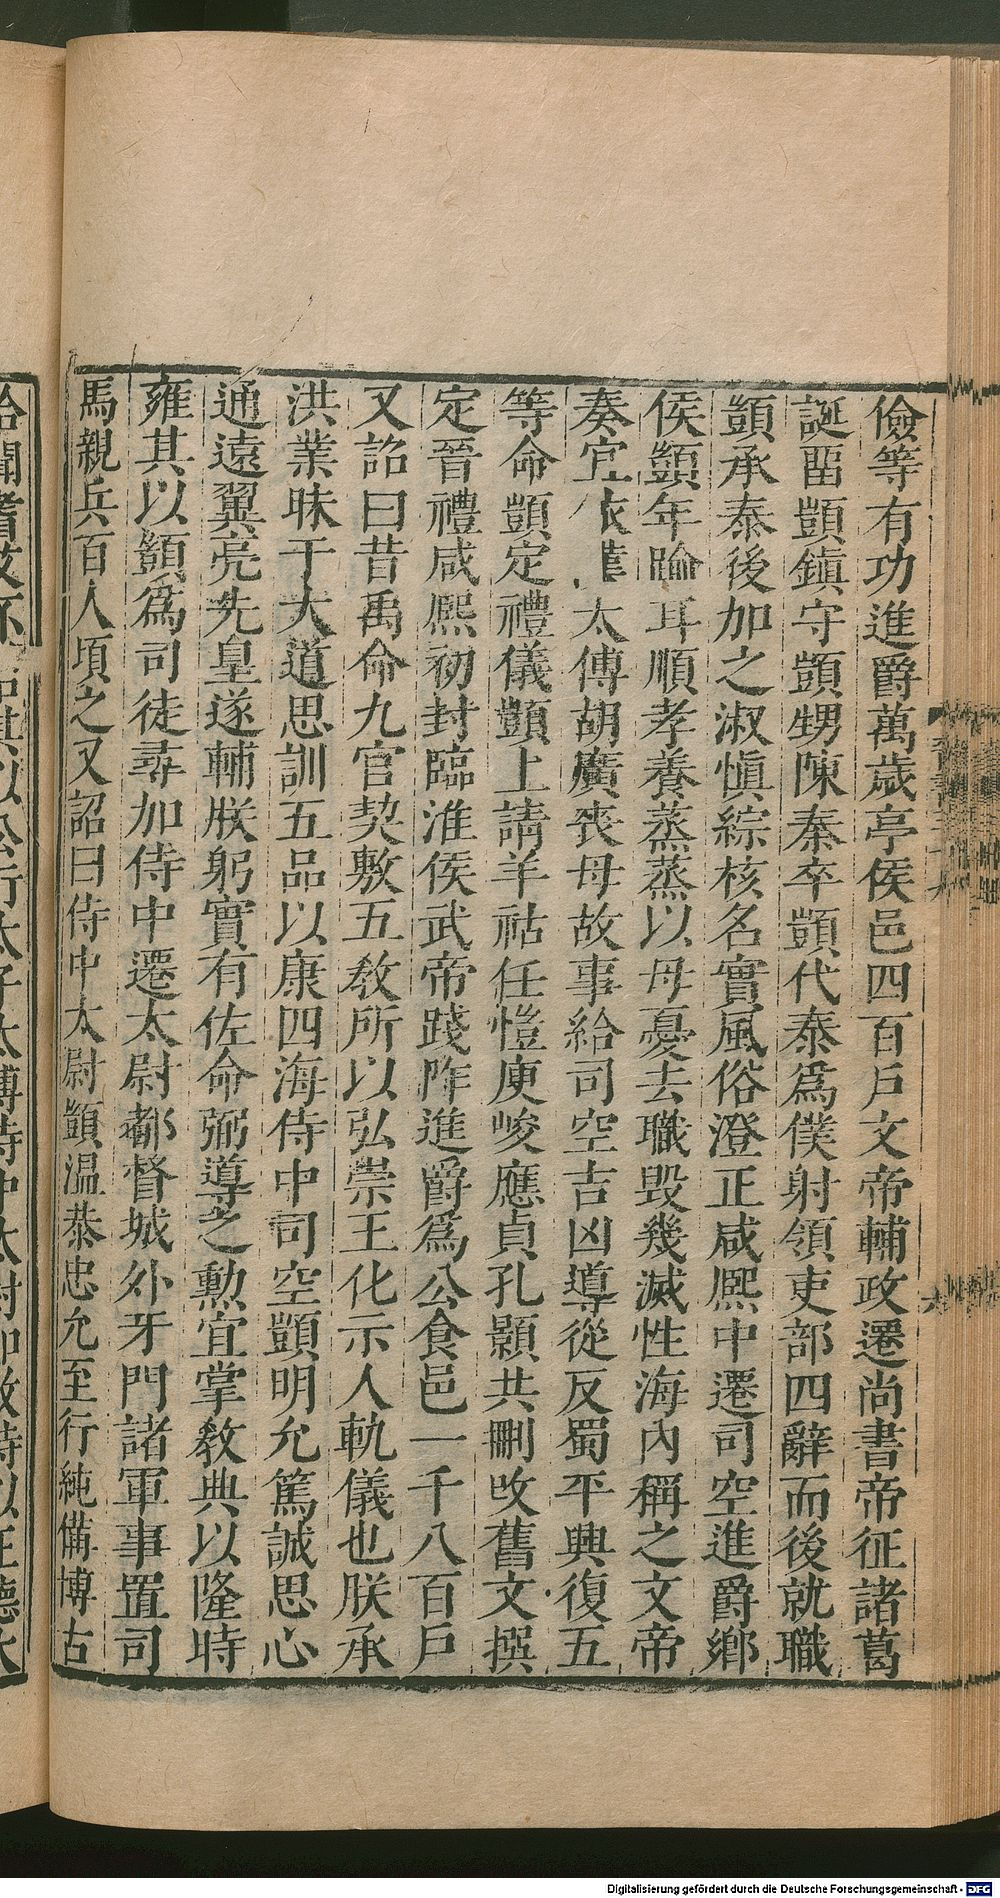 儉等有功進爵萬歲亭侯邑四百戶文帝輔政遷尚書帝征諸葛
誕留顗鎮守顗甥陳泰卒顗代泰爲僕射領吏部四辭而後就職
顗承泰後加之淑愼綜核名實風俗澄正咸熙中遷司空進爵鄉
侯顗年踰耳順孝養蒸蒸以母憂去職毀幾滅性海內稱之文帝
奏宜依漢太傅胡廣喪母故事給司空吉凶導從反蜀平興復五
等命顗定禮儀顗上請羊祜任愷庾峻應貞孔顥共刪改舊文撰
定晉禮咸熙初封臨淮侯武帝踐阼進爵爲公食邑一千八百戶
又詔曰昔禹命九官契敷五教所以弘崇王化示人軌儀也朕承
洪業昧于大道思訓五品以康四海侍中司空顗明允篤誠思心
通遠翼亮先皇遂輔朕躬實有佐命弼導之勳宜掌教典以隆時
雍其以顗爲司徒尋加侍中遷太尉都督城外牙門諸軍事置司
馬親兵百人頃之又詔曰侍中太尉顗温恭忠允至行純備博古
Digitalisierung gefördert durch die Deutsche Forschungsgemeinschaft - DFG